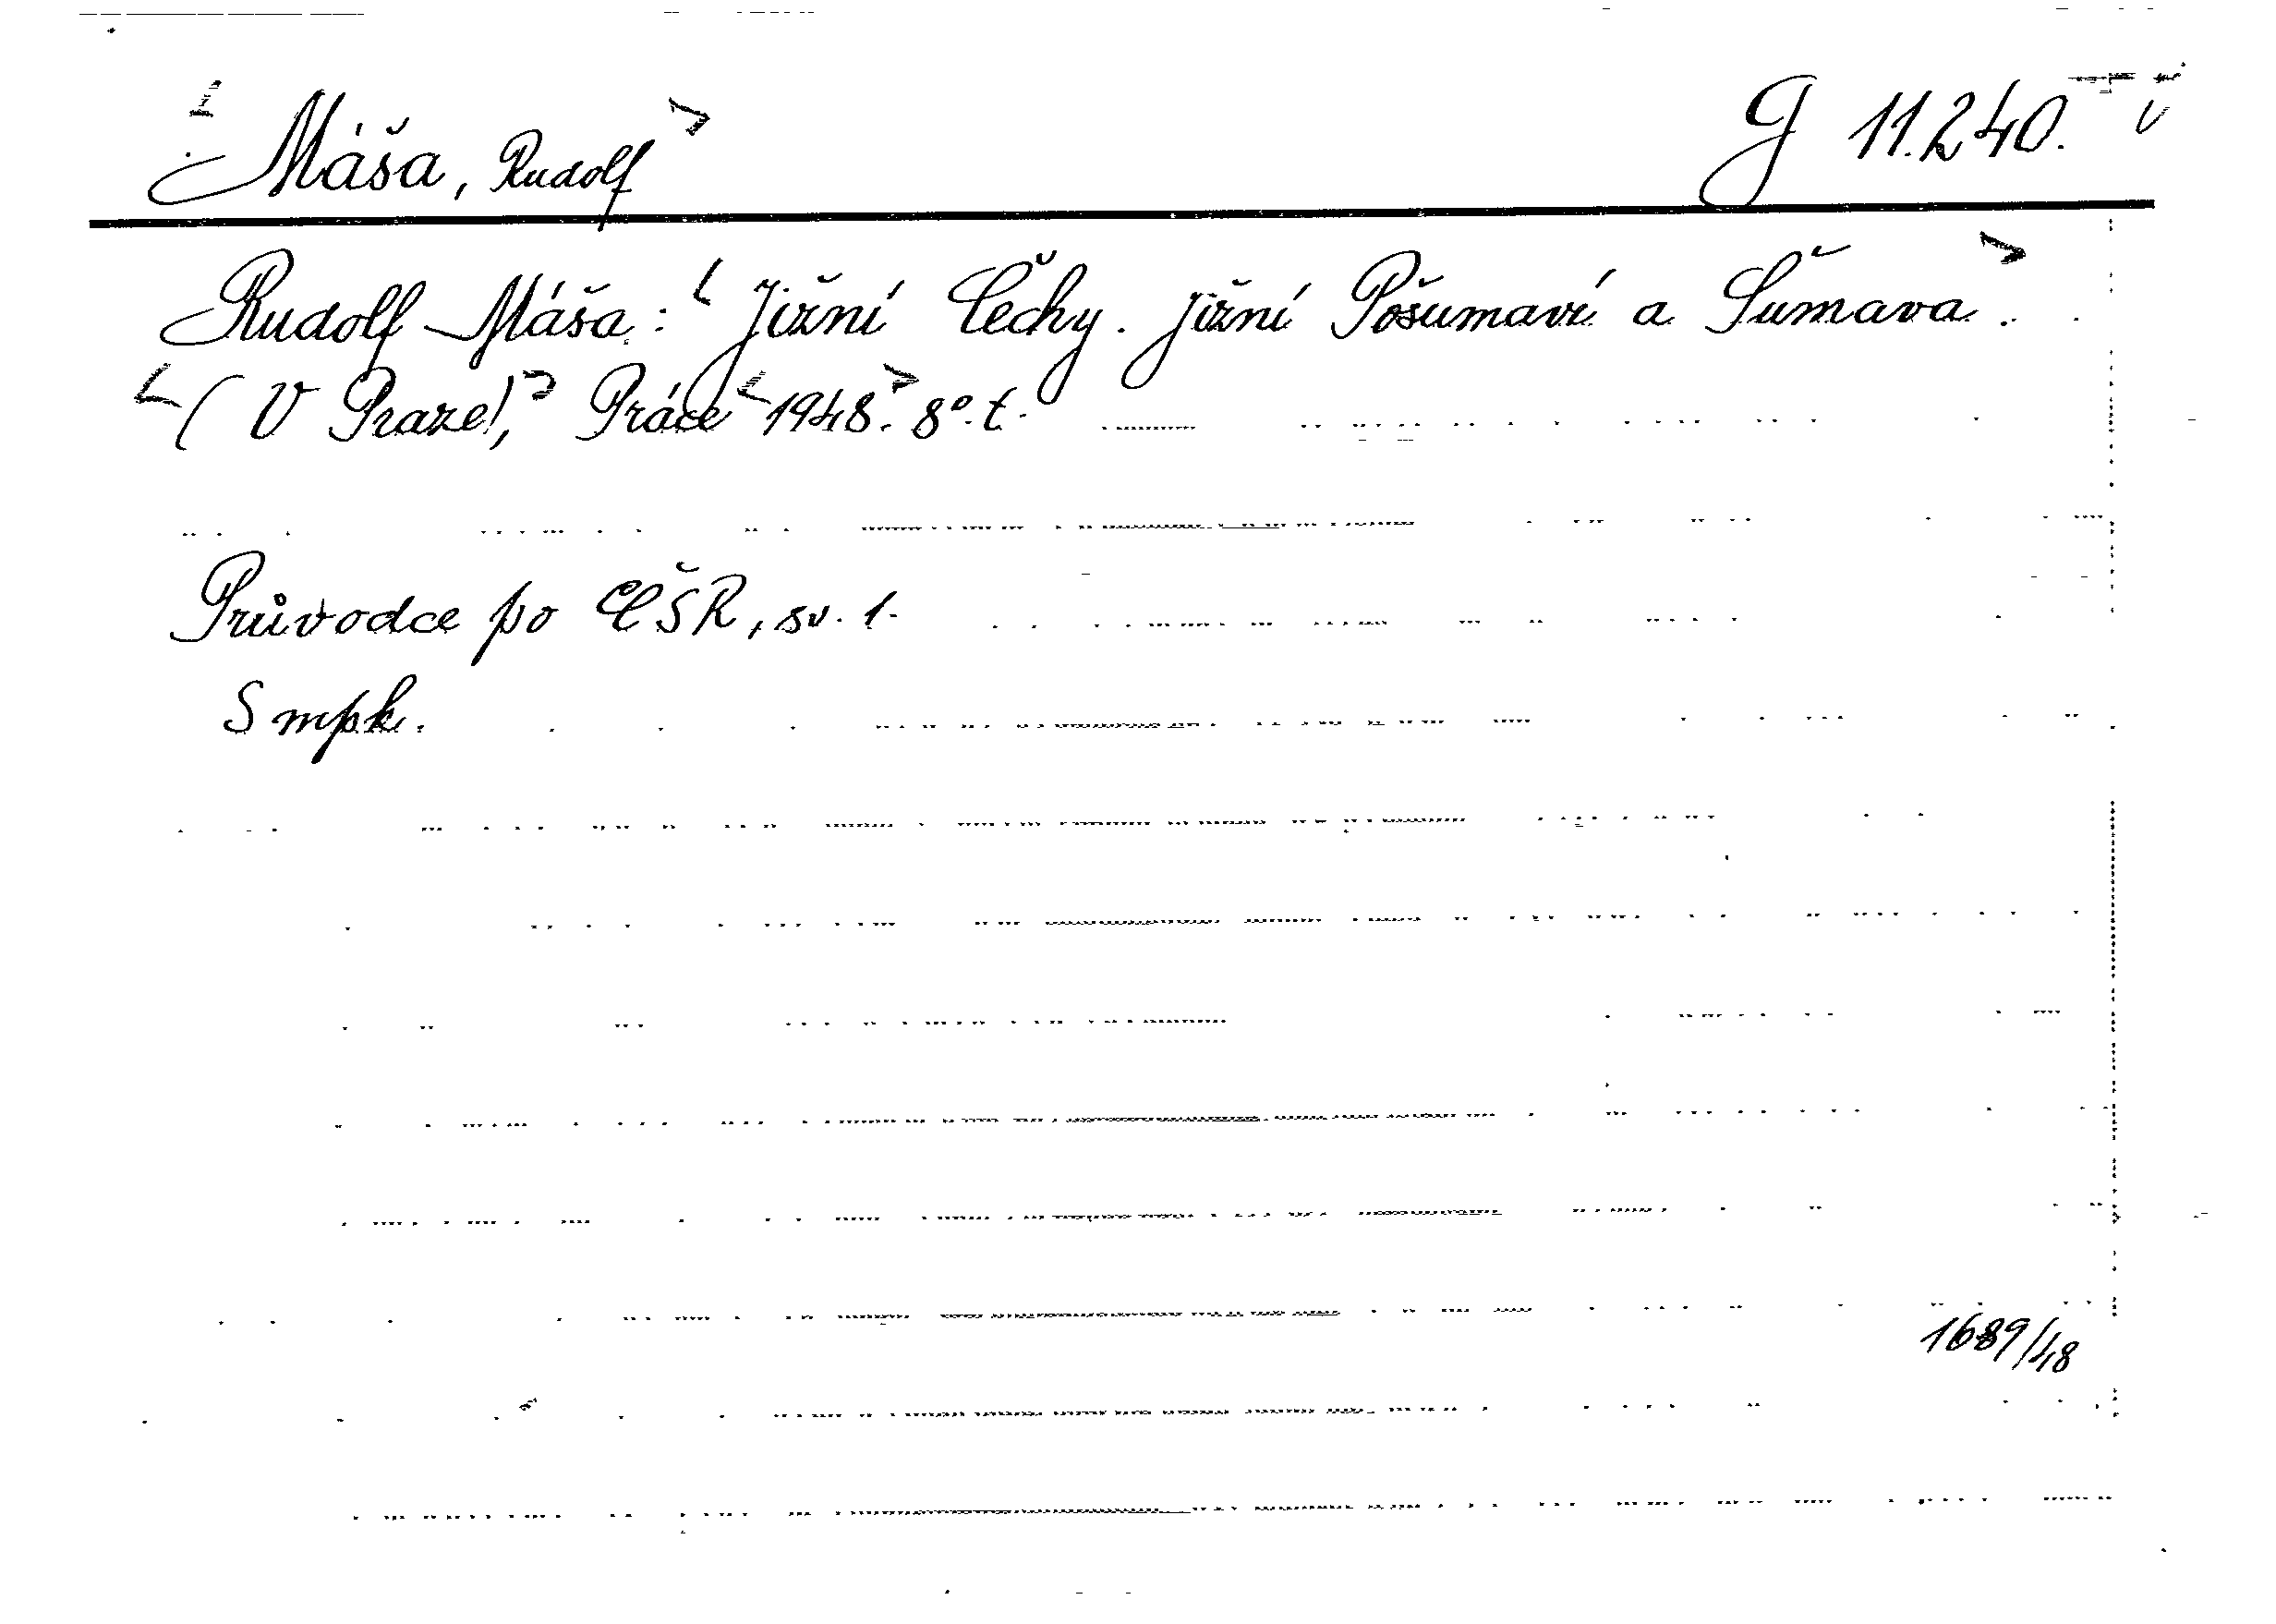 Máša, Rudolf G 11.240.
Rudolf Máša: Jižní Čechy. Jižní Pošumaví a Šumava.
(V Praze), Práce 1948. 8°. t.
Průvodce po ČSR, sv. 1.
S mpk.
1689/48